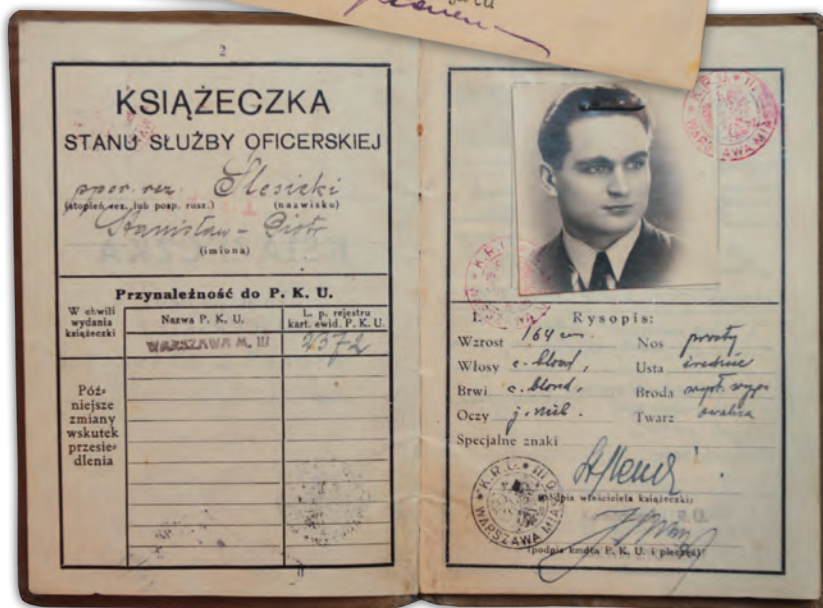 2
KSIĄŻECZKA
STANU SŁUŻBY OFICERSKIEJ
ppor. rez. Ślesicki
(stopień rez. lub posp. rusz.) (nazwisko)
Stanisław - Piotr
(imiona)
Przynależność do P. K. U.
W chwili wydania książeczki
Nazwa P. K. U.
L. p. rejestru kart. ewid. P. K. U.
WARSZAWA M. III
2372
Póź-
niejsze
zmiany
wskutek
przesie-
dlenia
K.R.U. III
WARSZAWA MIASTO
I. Rysopis:
Wzrost 164 cm. Nos prosty
Włosy c. blond, Usta średnie
Brwi c. blond, Broda
Oczy j. nieb. Twarz owalna
Specjalne znaki
K.R.U. III
WARSZAWA MIAS
(podpis właściciela książeczki)
(podpis kmdta P. K. U. i pieczęć)